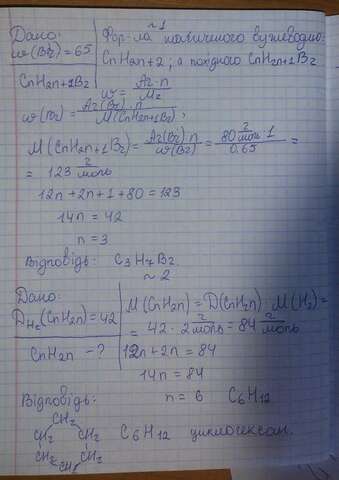 ~ 1
Дано:
w(Br) = 65
CnH2n+1Br
Фор-ла насиченого вуглеводню:
CnH2n+2; а похідного CnH2n+1Br
w = Ar·n / Mr
w(Br) = Ar(Br)·n / M(CnH2n+1Br);
M(CnH2n+1Br) = Ar(Br)·n / w(Br) = 80 г/моль·1 / 0,65 =
= 123 г/моль
12n + 2n + 1 + 80 = 123
14n = 42
n = 3
Відповідь: C3H7Br
~ 2
Дано:
DH2(CnH2n) = 42
CnH2n - ?
M(CnH2n) = D(CnH2n)·M(H2) =
= 42·2 г/моль = 84 г/моль
12n + 2n = 84
14n = 84
n = 6 C6H12
Відповідь:
CH2
CH2 CH2 C6H12 циклогексан.
CH2 CH2
CH2